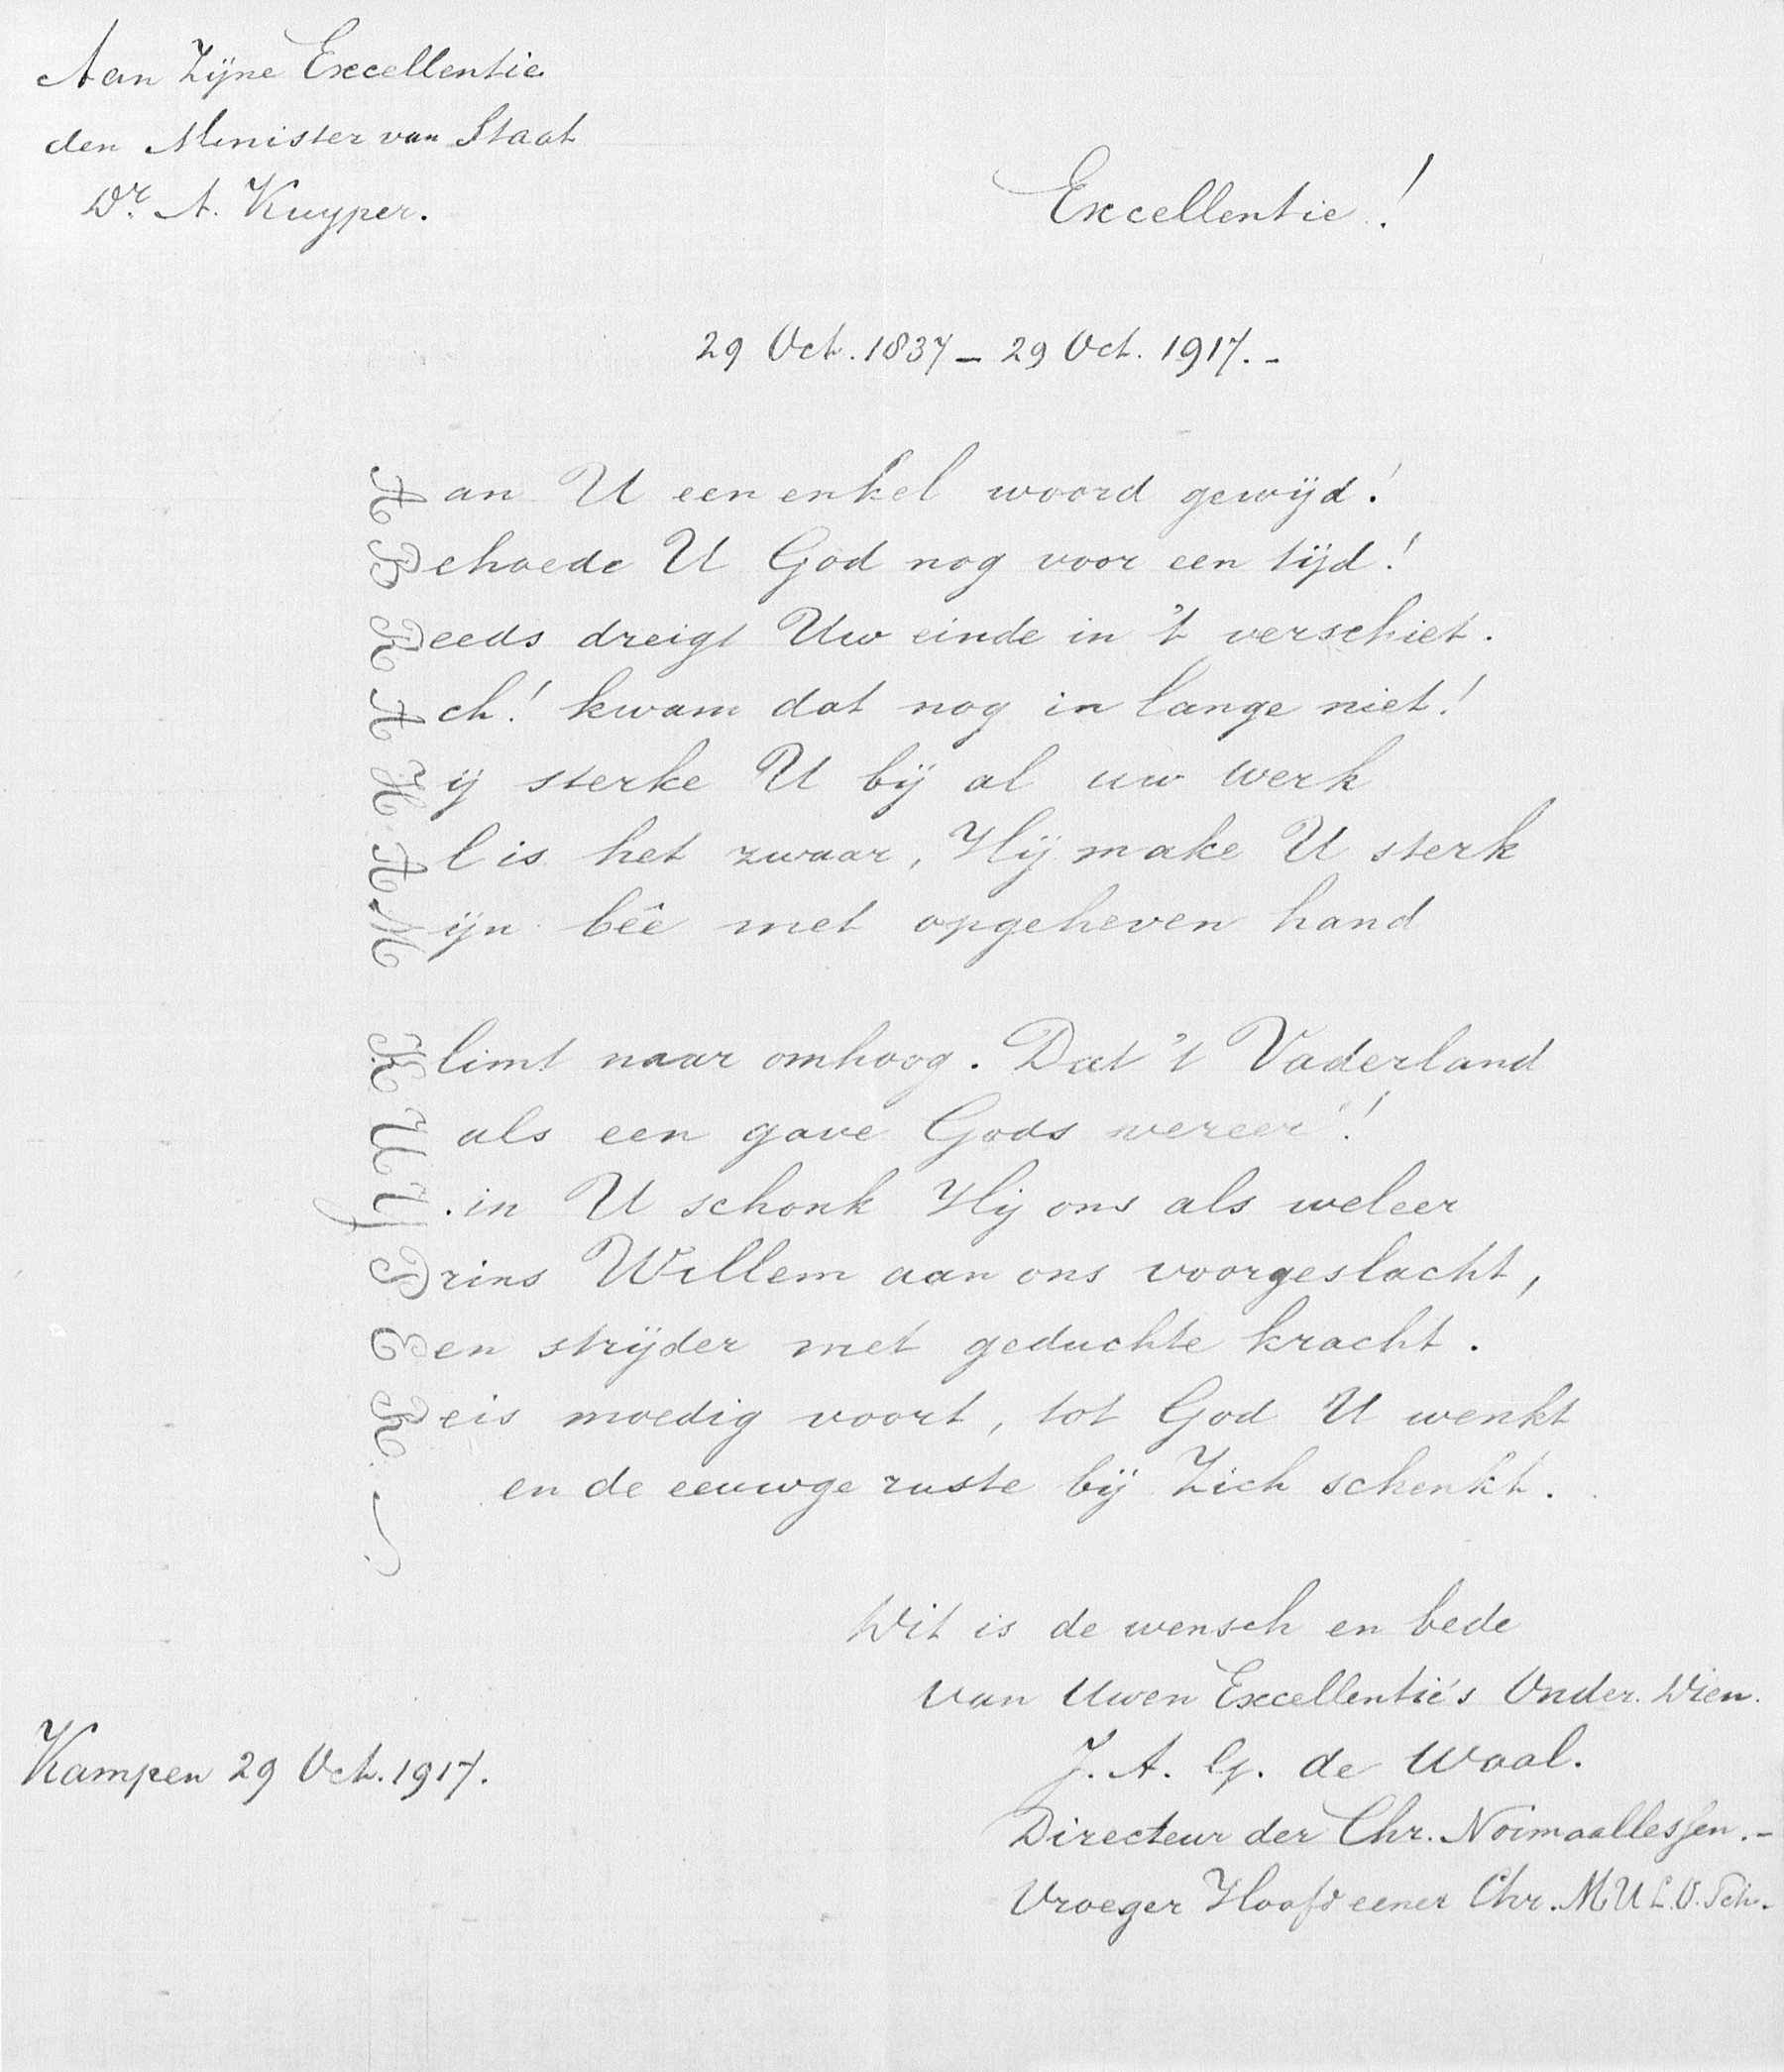 Aan Zijne Excellentie
den Minister van Staat
Dr. A. Kuyper.
Excellentie!
29 Oct. 1837 – 29 Oct. 1917. –
Aan U een enkel woord gewijd!
Behoede U God nog voor een tijd!
Reeds dreigt Uw einde in 't verschiet.
Ach! kwam dat nog in lange niet!
Hij sterke U bij al uw werk
Al is het zwaar, Hij make U sterk
Mijn bêe met opgeheven hand
Klimt naar omhoog. Dat 't Vaderland
U als een gave Gods vereer'!
Y. in U schonk Hij ons als weleer
Prins Willem aan ons voorgeslacht,
Een strijder met geduchte kracht.
Reis moedig voort, tot God U wenkt
en de eeuwge ruste bij Zich schenkt.
Dit is de wensch en bede
van Uwen Excellentie's Onder. Dien.
J. A. G. de Waal.
Kampen 29 Oct. 1917.
Directeur der Chr. Normaallessen. –
Vroeger Hoofd eener Chr. M U L. O. Sch.